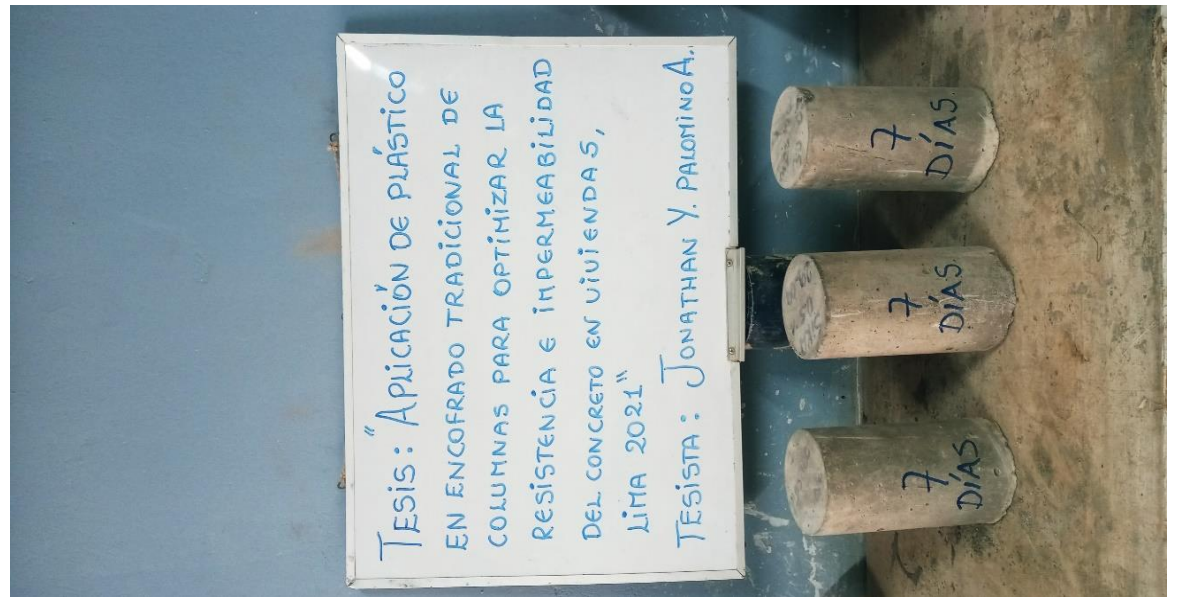 TESiS: "APLiCACIÓN DE PLÁSTiCO
EN ENCOFRADO TRADiCiONAL DE
COLUMNAS PARA OPTiMiZAR LA
RESiSTENCiA E iMPERMEABiLiDAD
DEL CONCRETO EN ViViENDAS,
LiMA 2021"
TESiSTA: JONATHAN Y. PALOMiNO A.
7
DÍAS
7
DÍAS.
7
DÍAS.